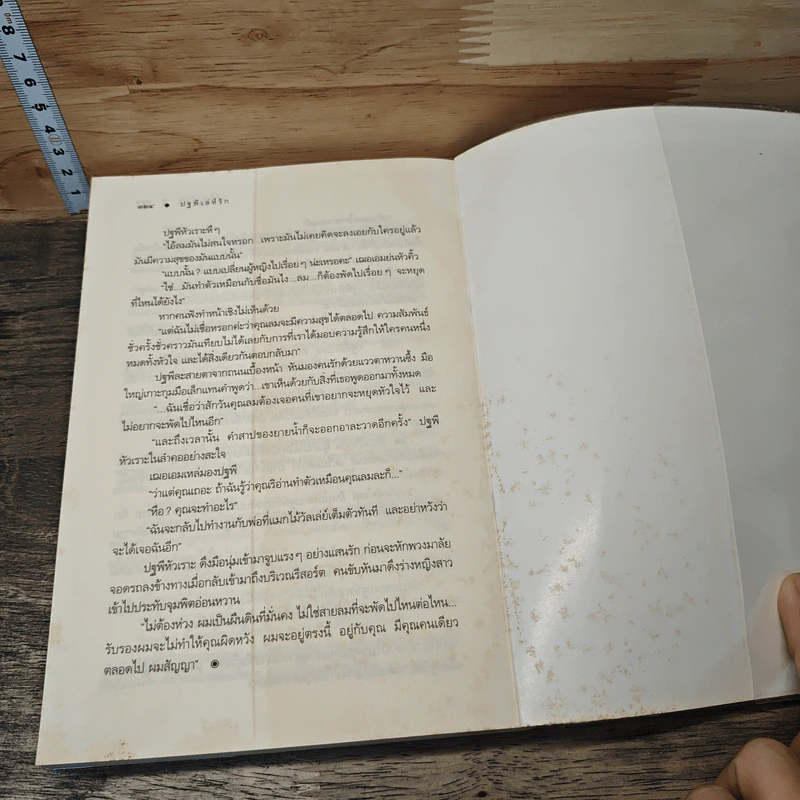 8
7
6
5
4
3
2
1
๓๒๔ ● ปฐพีเล่ห์รัก
ปฐพีหัวเราะหึๆ
"ไอ้ลมมันไม่สนใจหรอก เพราะมันไม่เคยคิดจะลงเอยกับใครอยู่แล้ว
มันมีความสุขของมันแบบนั้น"
"แบบนั้น? แบบเปลี่ยนผู้หญิงไปเรื่อยๆ น่ะเหรอคะ" เฌอเอมย่นหัวคิ้ว
"ใช่...มันทำตัวเหมือนกับชื่อมันไง...ลม...ก็ต้องพัดไปเรื่อยๆ จะหยุด
ที่ไหนได้ยังไง"
หากคนฟังทำหน้าเชิงไม่เห็นด้วย
"แต่ฉันไม่เชื่อหรอกค่ะว่าคุณลมจะมีความสุขได้ตลอดไป ความสัมพันธ์
ชั่วครั้งชั่วคราวมันเทียบไม่ได้เลยกับการที่เราได้มอบความรู้สึกให้ใครคนหนึ่ง
หมดทั้งหัวใจ และได้สิ่งเดียวกันตอบกลับมา"
ปฐพีละสายตาจากถนนเบื้องหน้า หันมองคนรักด้วยแววตาหวานซึ้ง มือ
ใหญ่เกาะกุมมือเล็กแทนคำพูดว่า...เขาเห็นด้วยกับสิ่งที่เธอพูดออกมาทั้งหมด
"...ฉันเชื่อว่าสักวันคุณลมต้องเจอคนที่เขาอยากจะหยุดหัวใจไว้ และ
ไม่อยากจะพัดไปไหนอีก"
"และถึงเวลานั้น คำสาปของยายน้ำก็จะออกอาละวาดอีกครั้ง" ปฐพี
หัวเราะในลำคออย่างสะใจ
เฌอเอมเหล่มองปฐพี
"ว่าแต่คุณเถอะ ถ้าฉันรู้ว่าคุณริอ่านทำตัวเหมือนคุณลมละก็..."
"หือ? คุณจะทำอะไร"
"ฉันจะกลับไปทำงานกับพ่อที่แมกไม้วัลเล่ย์เต็มตัวทันที และอย่าหวังว่า
จะได้เจอฉันอีก"
ปฐพีหัวเราะ ดึงมือนุ่มเข้ามาจูบแรงๆ อย่างแสนรัก ก่อนจะหักพวงมาลัย
จอดรถลงข้างทางเมื่อกลับเข้ามาถึงบริเวณรีสอร์ต คนขับหันมาดึงร่างหญิงสาว
เข้าไปประทับจุมพิตอ่อนหวาน
"ไม่ต้องห่วง ผมเป็นผืนดินที่มั่นคง ไม่ใช่สายลมที่จะพัดไปไหนต่อไหน...
รับรองผมจะไม่ทำให้คุณผิดหวัง ผมจะอยู่ตรงนี้ อยู่กับคุณ มีคุณคนเดียว
ตลอดไป ผมสัญญา" ◉